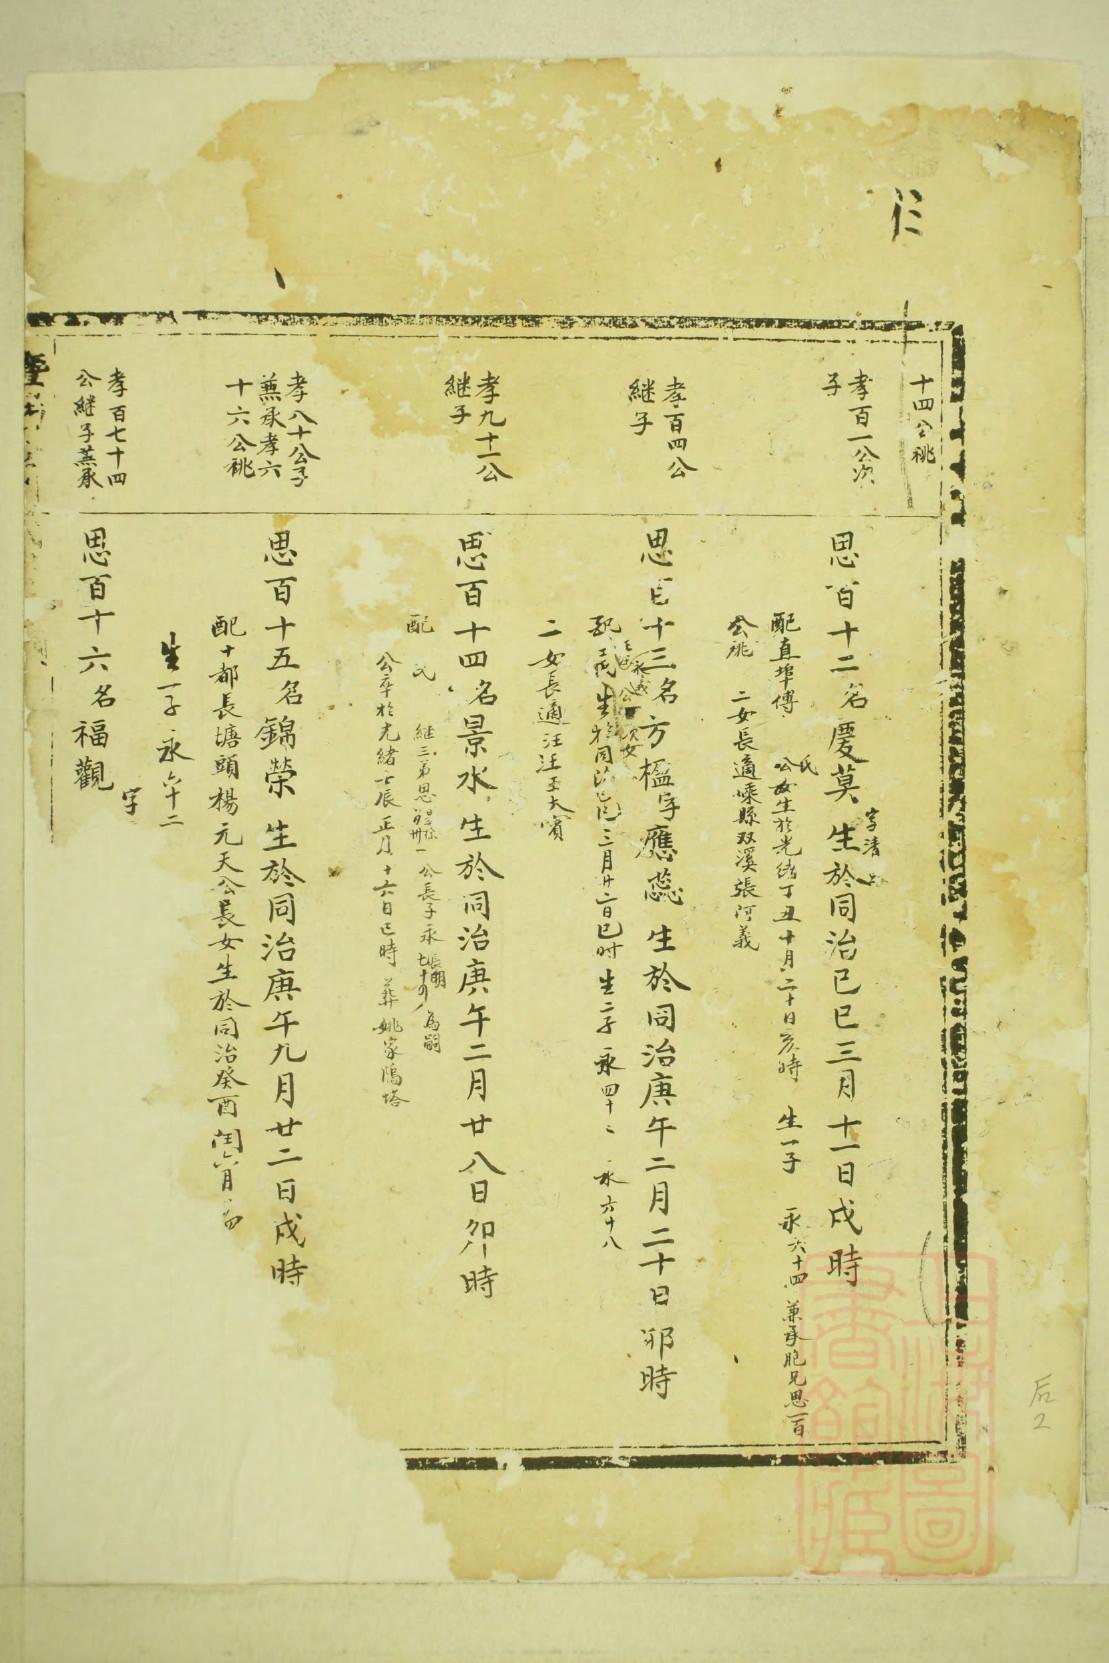 十四公祧
孝百一公次
子
思百十二名慶莫 生於同治已巳三月十一日戍時
字清
配直埠傅 氏
公女生於光緒丁丑十月二十日亥時 生一子 永六十四 兼承胞兄思百
公祧 二女長適嵊縣双溪張河義
孝百四公
継子
思百十三名方楹字應蕊 生於同治庚午二月二十日卯時
配 生於同治 三月廿二日巳时 生二子 永四十二 永六十八
二女長適汪汪 大賓
孝九十一公
継子
思百十四名景水 生於同治庚午二月廿八日卯時
配 氏 継三弟思 公長子永 為嗣
公卒於光緒 辰正月十六日巳時 葬姚家塢塔
孝八十公子
兼承孝六
十六公祧
思百十五名錦榮 生於同治庚午九月廿二日戍時
配十都長塘頭楊元天公長女生於同治癸酉閏六月
生一子 永六十二
孝百七十四
公継子兼承
思百十六名福觀
字
后2
上海圖書館藏